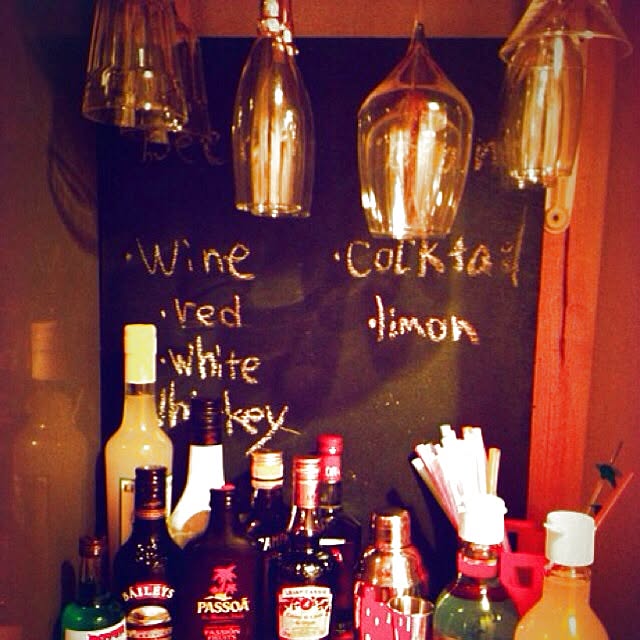 • Wine
• red
• white
Whiskey
• Cocktail
• limon
BAILEYS
PASSOÃ
PASSION